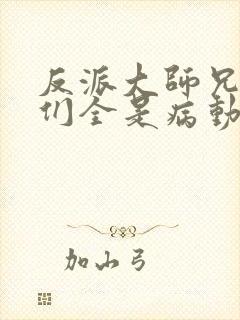 反派大師兄
们全是病
加山弓